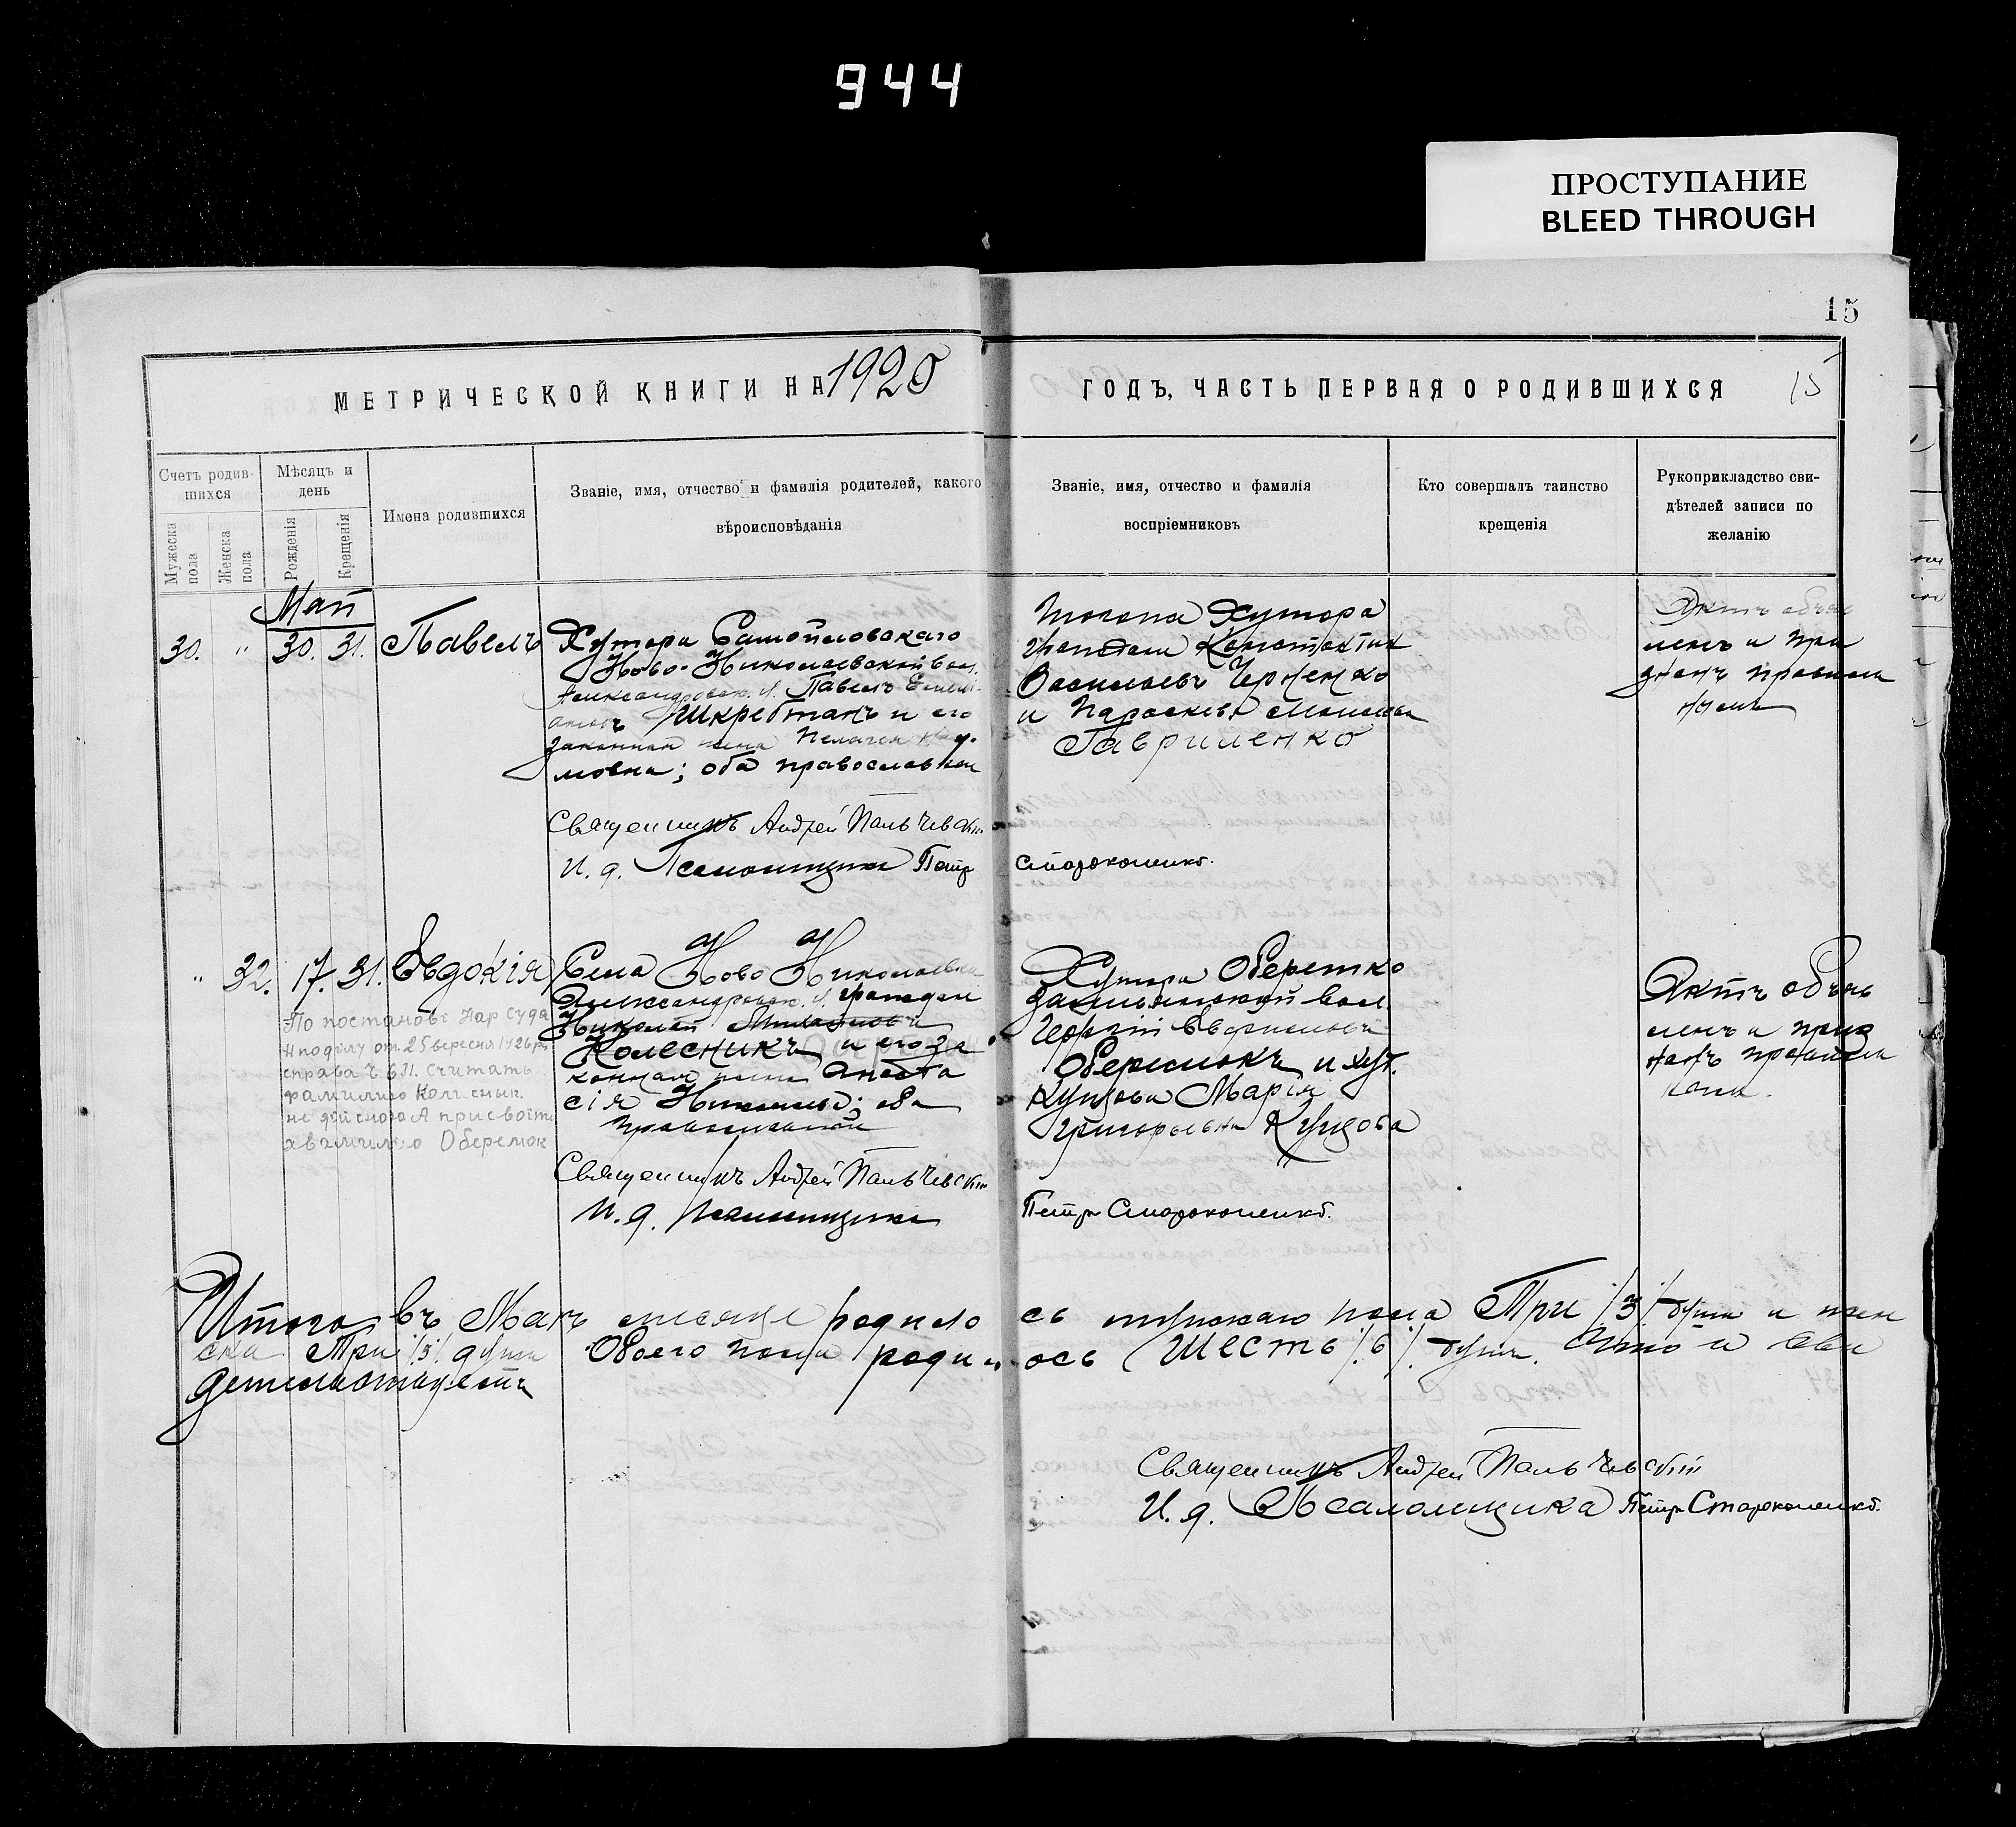 944
ПРОСТУПАНИЕ
BLEED THROUGH
15
МЕТРИЧЕСКОЙ КНИГИ НА 1920
ГОДЪ, ЧАСТЬ ПЕРВАЯ О РОДИВШИХСЯ
15
Счетъ родив-
шихся
Мужеска
пола
Женска
пола
Мѣсяцъ и
день
Рожденія
Крещенія
Имена родившихся
Званіе, имя, отчество и фамилія родителей, какого
вѣроисповѣданія
Званіе, имя, отчество и фамилія
воспріемниковъ
Кто совершалъ таинство
крещенія
Рукоприкладство сви-
дѣтелей записи по
желанію
Май
30. " 30. 31. Павелъ
Хутора
Ново-Николаевской вол.
Александровск. у. Павелъ
Шкребтанъ и его
законная жена Пелагея Нау-
мовна; оба православные
Священникъ Андрей Пальчевскій
И. д. Псаломщика Петр Стороженко.
того Хутора
граждан Константин
Васильевъ Черненко
и Параскева
Гавриленко
Актъ объяв
ленъ и при
знанъ правиль
нымъ
" 32. 17. 31. Евдокія
По постанове Нар Суда
от 25 вересня 1926 р.
справа ч. 611. Считать
фамилию
А присвоїть
хвамилию Оберемок
Села Ново Николаевки
Александровск. у. граждан
Николай
Колесникъ и его за
конная жена Анаста
сія; оба
православные
Священникъ Андрей Пальчевскій
И. д. Псаломщика
Петр Стороженко.
Хутора
вол.
Георгій
Оберемокъ и хут.
Куцова Марія
Григорьевна Куцова
Актъ объяв
ленъ и приз
нанъ правиль
нымъ.
Итого въ Маѣ месяце родилось мужскаго пола Три /3/ души и жен
ска Три /3/ души Обоего пола родилось Шесть /6/ душъ. Что и сви
детельствуемъ
Священникъ Андрей Пальчевскій
И. д. Псаломщика Петр Стороженко.